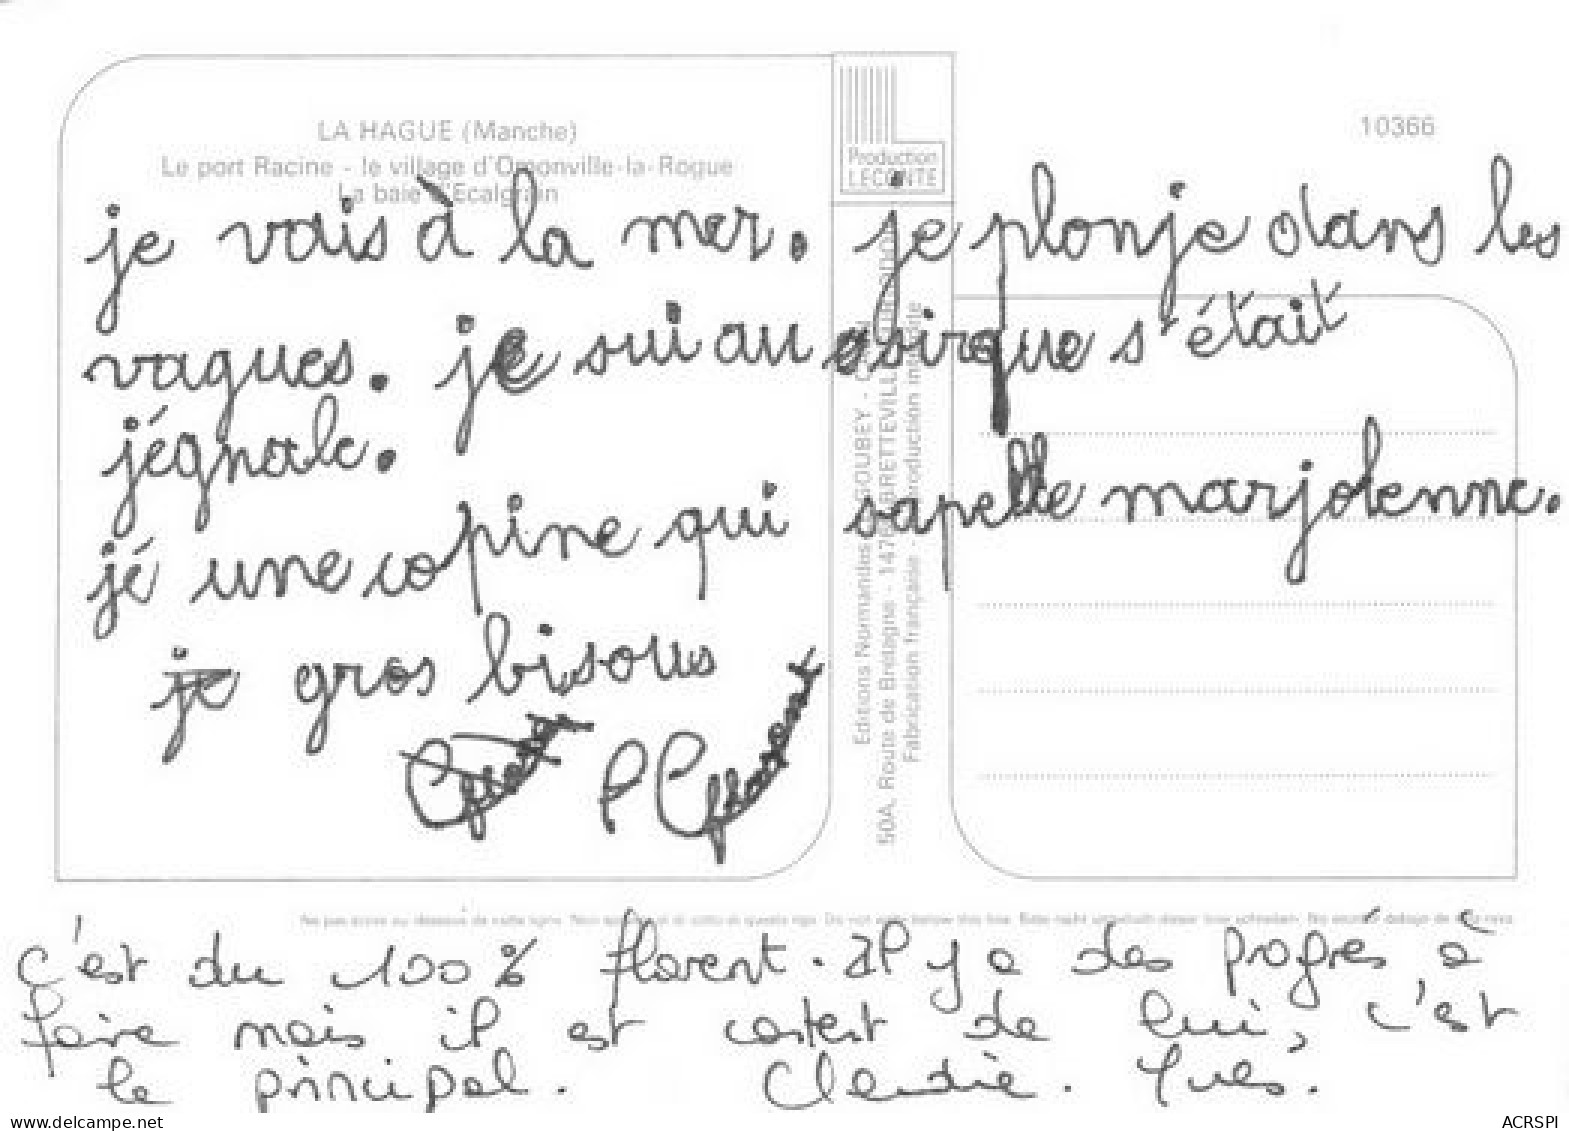 LA HAGUE (Manche)
Le port Racine - le village d'Omonville-la-Rogue
La baie d'Ecalgrain
10366
Production
LECONTE
je vais à la mer. je plonje dans les
vagues. je sui au sirque s'était
jégnale.
jé une copine qui sapelle marjolenne.
je gros bisous
Editions Normandes GOUBEY
50A, Route de Bretagne - BRETTEVILLE
Fabrication française - Reproduction interdite
c'est du 100% florent. Il y a des progrès à
faire mais il est content de lui, c'est
le principal. Claudie. Yves.
www.delcampe.net
ACRSPI